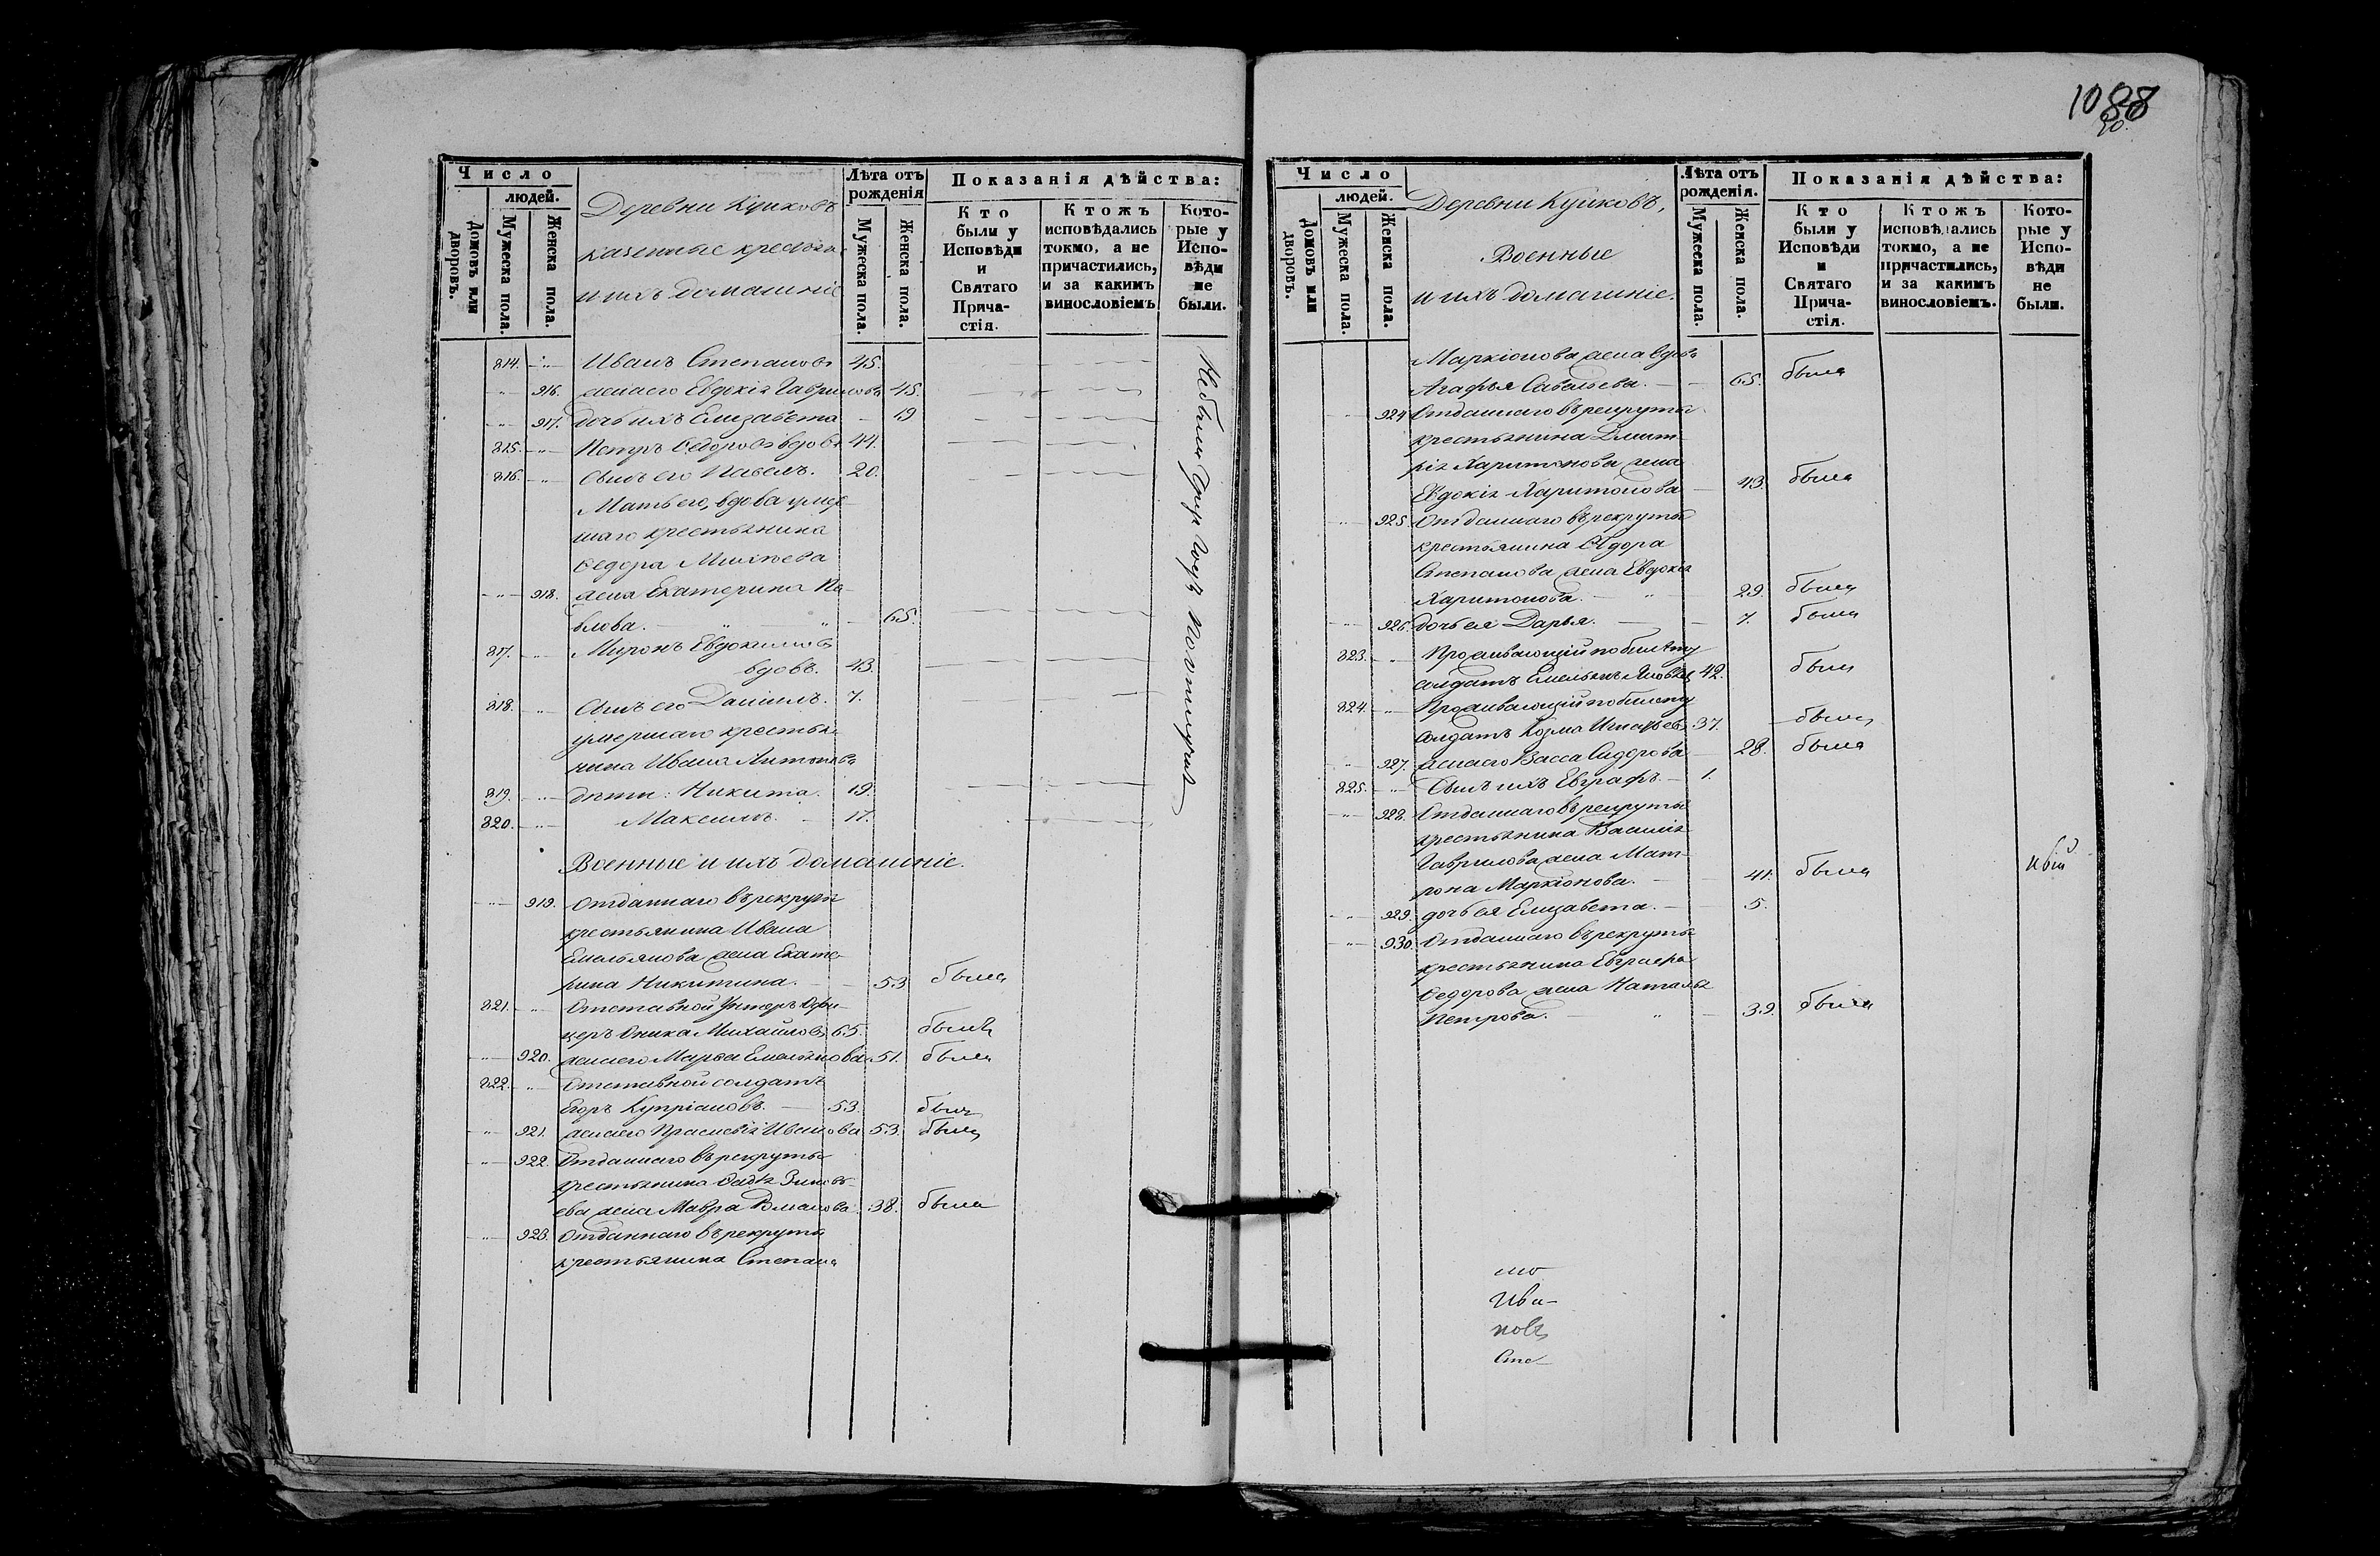 1088
90.
Число
людей.
Домовъ или дворовъ.
Мужеска пола.
Женска пола.
Деревни Куиковъ
казенные крестьяне
и ихъ домашніе
Лѣта отъ рожденія
Мужеска пола.
Женска пола.
Показанія дѣйства:
Кто были у Исповѣди и Святаго Причастія.
Ктожъ исповѣдались токмо, а не причастились, и за какимъ винословіемъ
Которые у Исповѣди не были.
814. Иванъ Степановъ 45.
916. жена его Евдокія Гаврилова 45.
917. дочь ихъ Елизавета 19
815. Петръ Ѳедоровъ вдовъ 44.
816. Сынъ его Павелъ. 20.
Мать его, вдова умер
шаго крестьянина
Ѳедора Михѣева
918. жена Екатерина Па
влова. 65.
817. Миронъ Евдокимовъ
вдовъ. 43.
818. Сынъ его Даніилъ. 7.
умершаго крестья
нина Ивана Антонова
819. дѣти: Никита. 19.
820. Максимъ. 17.
Не были
Военные и ихъ домашніе.
919. Отданнаго въ рекруты
крестьянина Ивана
Емельянова жена Екате
рина Никитина. 53 была
821. Отставной Унтеръ Офи-
церъ Оника Михайловъ 65. былъ
920. жена его Марѳа Емельянова 51. была
822. Отставной солдатъ
Егоръ Купріановъ. 53. былъ
921. жена его Прасковія Иванова 53. была
922. Отданнаго въ рекруты
крестьянина Ѳаддѣя Зиновь-
ева жена Мавра Романова 38. была
923. Отданнаго въ рекруты
крестьянина Степана
Число
людей.
Домовъ или дворовъ.
Мужеска пола.
Женска пола.
Деревни Куиковъ,
Военные
и ихъ домашніе.
Лѣта отъ рожденія.
Мужеска пола.
Женска пола.
Показанія дѣйства:
Кто были у Исповѣди и Святаго Причастія.
Ктожъ исповѣдались токмо, а не причастились, и за какимъ винословіемъ.
Которые у Исповѣди не были.
Маркіонова жена вдова
Агафья Савельева. 65. была
924 Отданнаго въ рекруты
крестьянина Дмит-
рія Харитонова жена
Евдокія Харитонова 43. была
925. Отданнаго въ рекруты
крестьянина Ѳедора
Степанова жена Евдокія
Харитонова. 29. была
926. дочь ея Дарья. 7. была
823. Проживающій по билету
солдатъ Емельянъ Яковлевъ 42. былъ
824. Проживающій по билету
солдатъ Козма Игнатьевъ 37. былъ
927. жена его Васса Сидорова 28. была
825. Сынъ ихъ Евграфъ. 1.
928. Отданнаго въ рекруты
крестьянина Василія
Гаврилова жена Мат-
рона Маркіонова. 41. была
929. дочь ея Елизавета. 5.
930. Отданнаго въ рекруты
крестьянина Евграфа
Ѳедорова жена Наталья
Петрова. 39. была
Ива-
новъ
Сте-